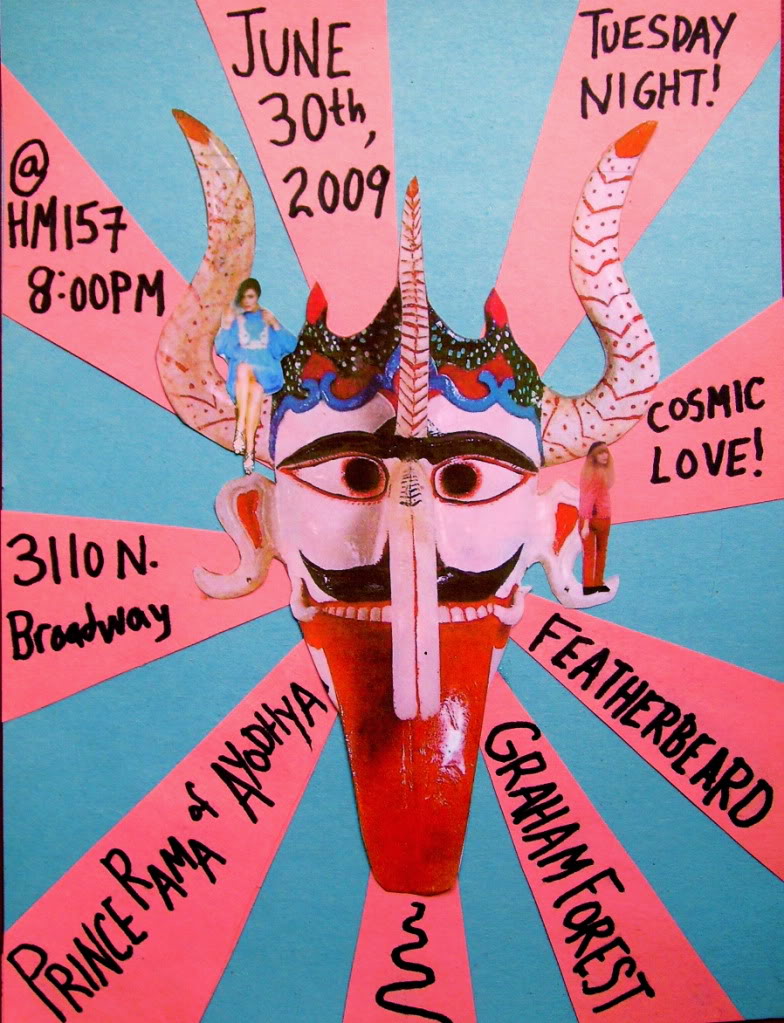 JUNE
30th,
2009
TUESDAY
NIGHT!
@
HM157
8:00PM
COSMIC
LOVE!
3110 N.
Broadway
PRINCE RAMA of AYODHYA
GRAHAM FOREST
FEATHERBEARD